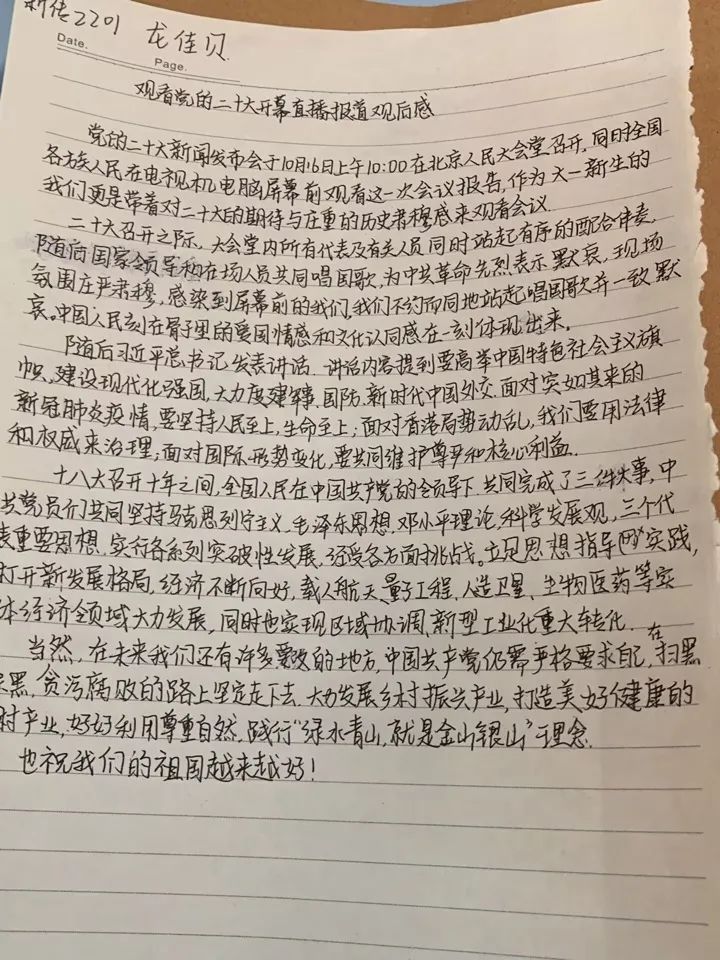 新传2201 龙佳贝
Date.
Page.
观看党的二十大开幕直播报道观后感
党的二十大新闻发布会于10月16日上午10:00在北京人民大会堂召开,同时全国
各族人民在电视机电脑屏幕前观看这一次会议报告,作为大一新生的
我们更是带着对二十大的期待与庄重的历史肃穆感来观看会议.
二十大召开之际,大会堂内所有代表及有关人员同时站起有序的配合伴奏,
随后国家领导和在场人员共同唱国歌,为中共革命先烈表示默哀,现场
氛围庄严肃穆,感染到屏幕前的我们,我们不约而同地站起唱国歌并一致默
哀。中国人民刻在骨子里的爱国情感和文化认同感在一刻体现出来。
随后习近平总书记发表讲话.讲话内容提到要高举中国特色社会主义旗
帜,建设现代化强国,大力度建军事、国防、新时代中国外交.面对突如其来的
新冠肺炎疫情,要坚持人民至上,生命至上;面对香港局势动乱,我们要用法律
和权威来治理,面对国际形势变化,要共同维护尊严和核心利益.
十八大召开十年之间,全国人民在中国共产党的领导下共同完成了三件大事,中
共党员们共同坚持马克思列宁主义、毛泽东思想、邓小平理论、科学发展观、三个代
表重要思想,实行各系列突破性发展,经受各方面挑战。立足思想指导实践,
打开新发展格局,经济不断向好,载人航天、量子工程、人造卫星、生物医药等实
体经济领域大力发展,同时也实现区域协调、新型工业化重大转化.
当然,在未来我们还有许多要改的地方,中国共产党仍需严格要求自己,在扫黑
除黑,贪污腐败的路上坚定走下去.大力发展乡村振兴产业,打造美好健康的
村产业,好好利用尊重自然,践行“绿水青山,就是金山银山”理念.
也祝我们的祖国越来越好!